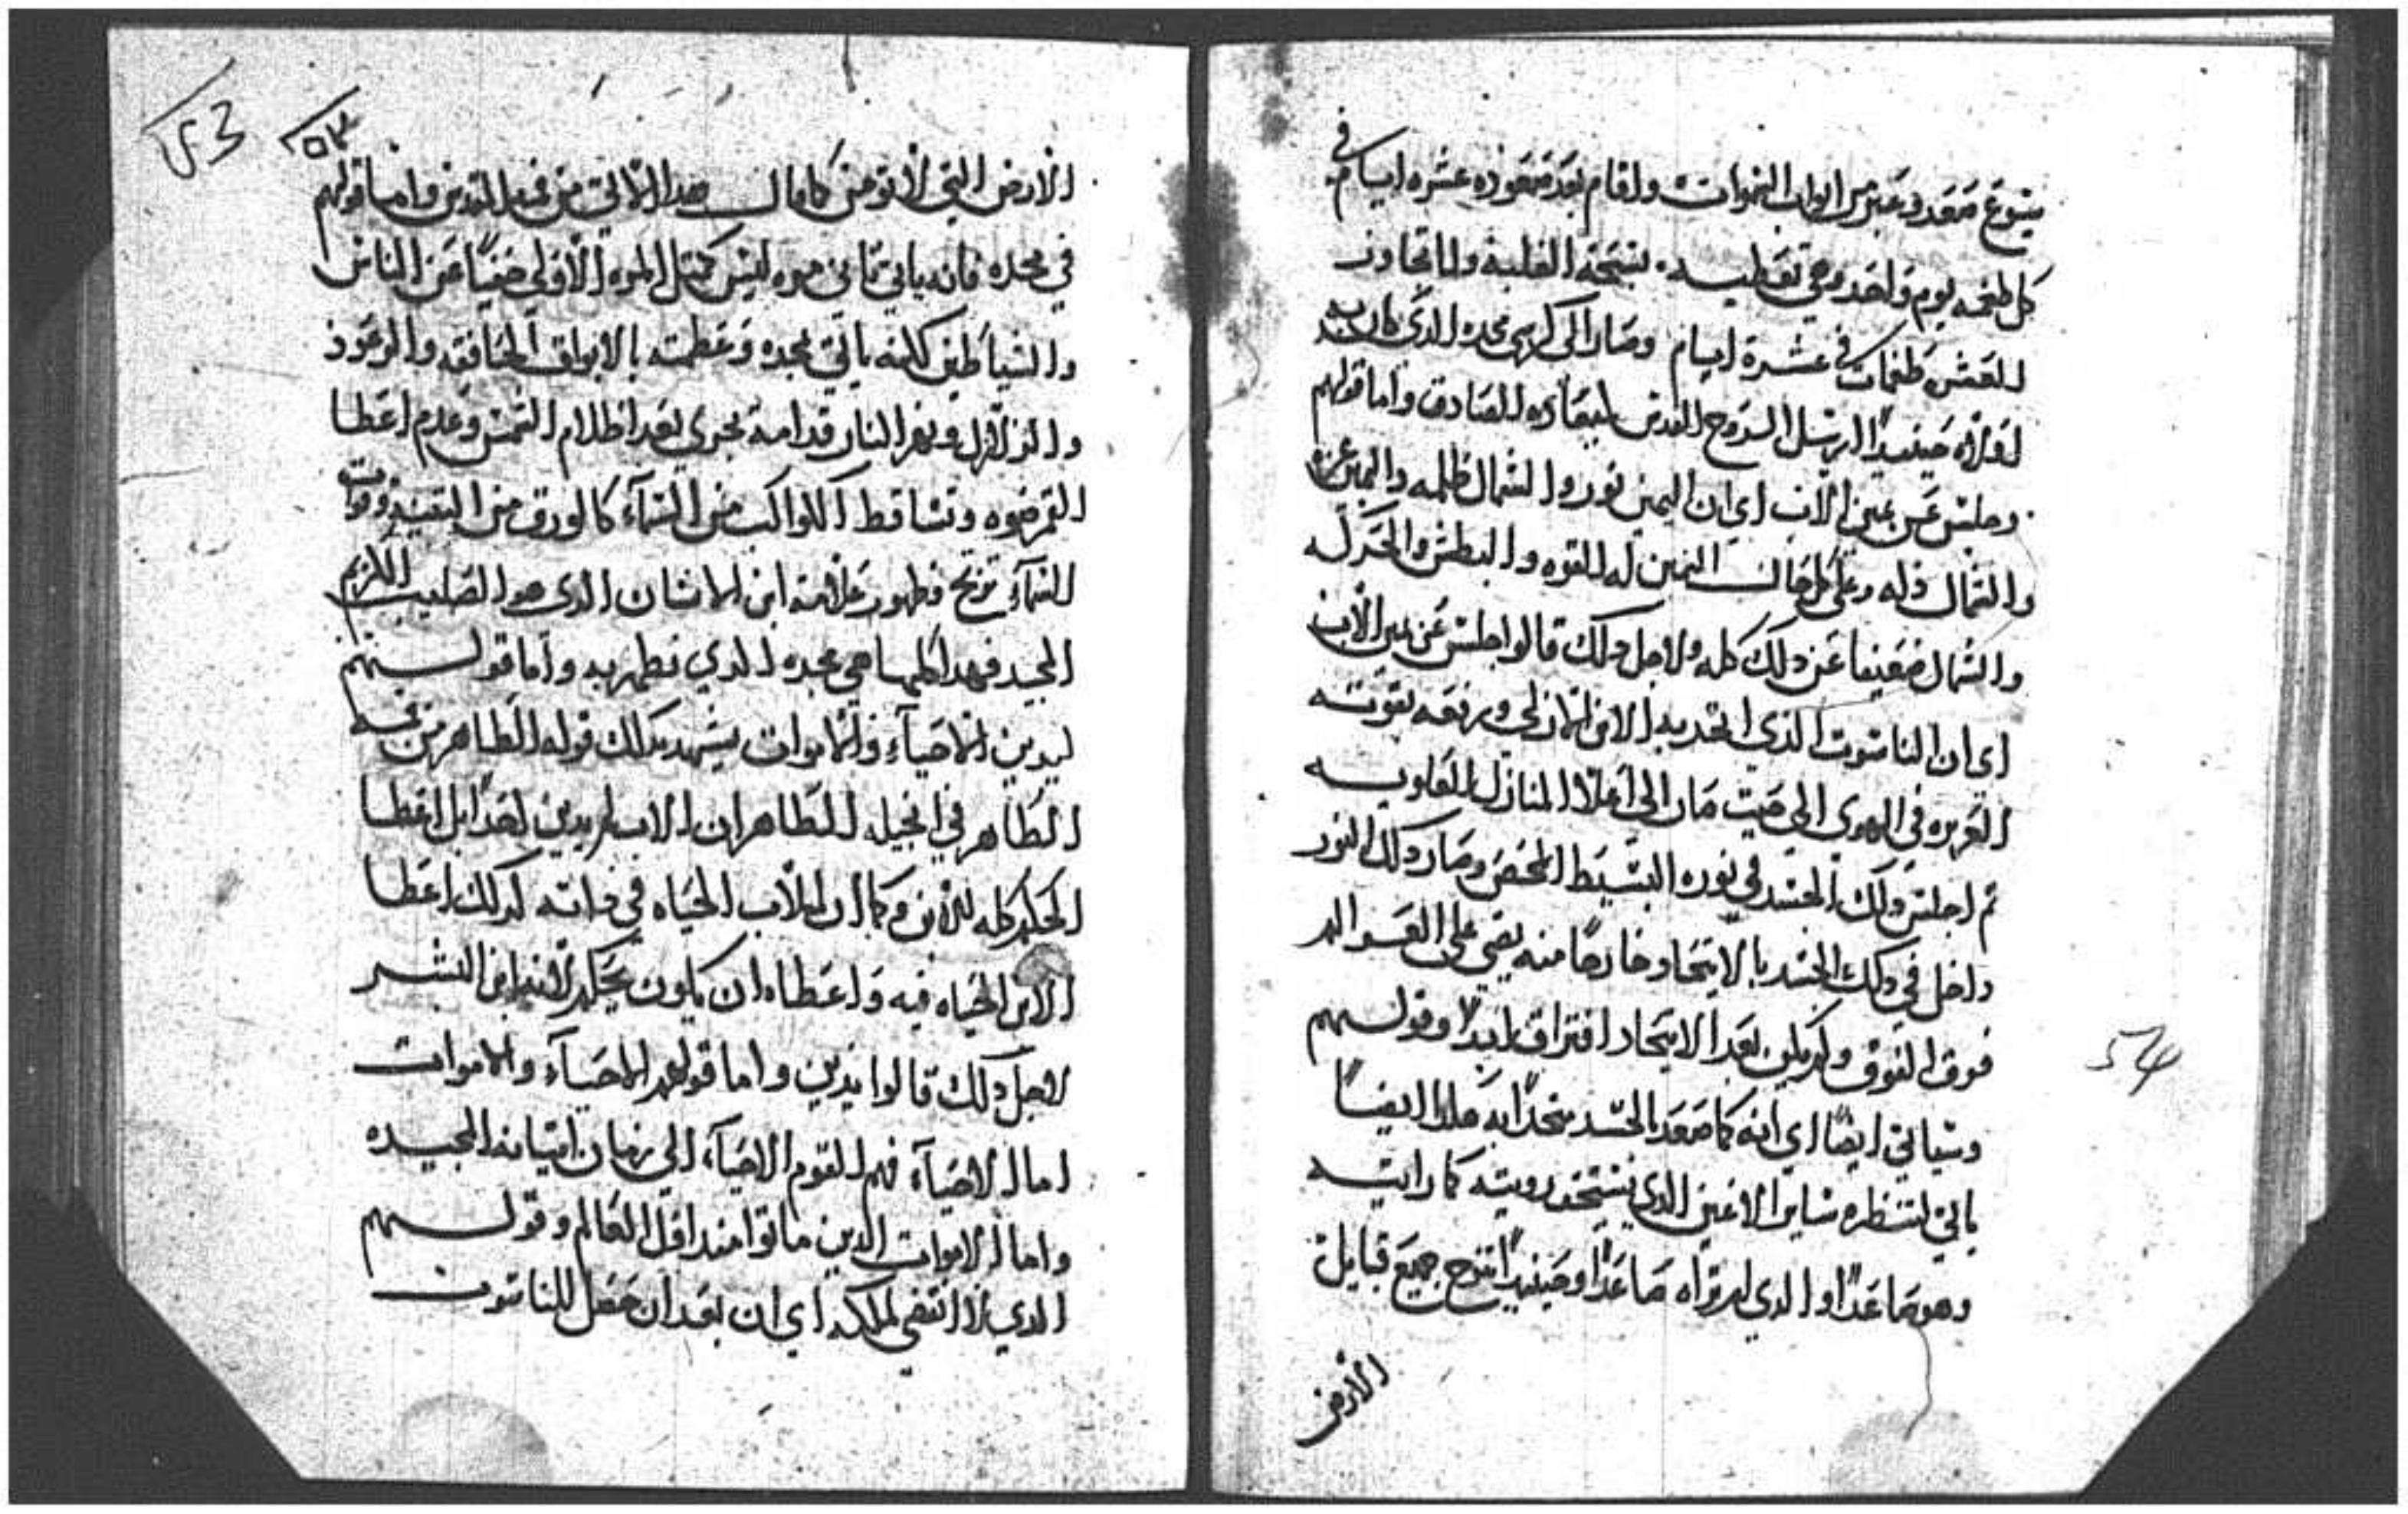 يشوع صعد وعبر من ابواب السموات واقام بعد صعوده عشره ايام في
كل طغمه يوم واحد وهي تعطيه تسبحة الغلبة ولما تجاوز
التسع طغمات في عشرة ايام وصار الى كرسي مجده الذي كان به
اولاه حينيدًا ارسل الروح القدس لميعاده الصادق واما قولهم
وجلس عن يمين الاب اي ان اليمين نور والشمال ظلمه واليمين عز
والشمال ذله وعلى كل حال اليمين له القوه والبطش والحركه
والشمال ضعيفا عن ذلك كله ولاجل ذلك قالوا جلس عن يمين الاب
اي ان الناسوت الذي اتحد به الابن الازلي ورفعه بقوته
العزيزه في الهوى الى حيت صار الى اعلا المنازل العلويه
تم اجلس ذلك الجسد في نوره البسيط المحض وصار ذلك النور
داخل في ذلك الجسد بالاتحاد وخارجًا منه يضي على العوالم
فوق الفوق ولم يكون بعد الاتحاد افتراق ابدًا وقولهم
وسياتي ايضًا اي انه كما صعد بالجسد متحدًا به هكذا ايضًا
ياتي لتنظره ساير الاعين الذي تستحق رويته كما راته
وهو صاعدًا والذي لم تراه صاعدًا وحينيدًا تنوح جميع قبايل
الارض
54
53
٥٣
الارض التي لا تومن كما قال هذا الاتي من فيه المقدس واما قولهم
في مجده فانه ياتي تاني مره ليس كمثل المره الاولى خفيًا عن الناس
والشياطين لكنه ياتي بمجده وعظمته بالابواق الخافقه والرعود
والزلازل ونهر النار قدامه يجري بعد اظلام الشمس وعدم اعطا
القمر ضوه وتساقط الكواكب من السما كالورق من التينه وقوات
السماء ترتج وظهور علامة ابن الانسان الذي هو الصليب الكريم
المجيد فهذا كلها هي مجده الذي تظهر به واما قولهم
ليدين الاحياء والاموات يشهد بذلك قوله الطاهر من فمه
الطاهر في انجيله الطاهر ان الاب لم يدين احدًا بل اعطا
الحكم كله للابن وكما ان للاب الحياه في ذاته كذلك اعطا
الابن الحياه فيه واعطاه ان يكون يحكم لانه ابن البشر
لاجل ذلك قالوا يدين واما قولهم الاحياء والاموات
اما الاحياء فهم القوم الاحياء الى زمان اتيانه المجيده
واما الاموات الذين ماتوا منذ اول العالم وقولهم
الذي لا انقضى لملكه اي ان بعد ان حصل للناسوت